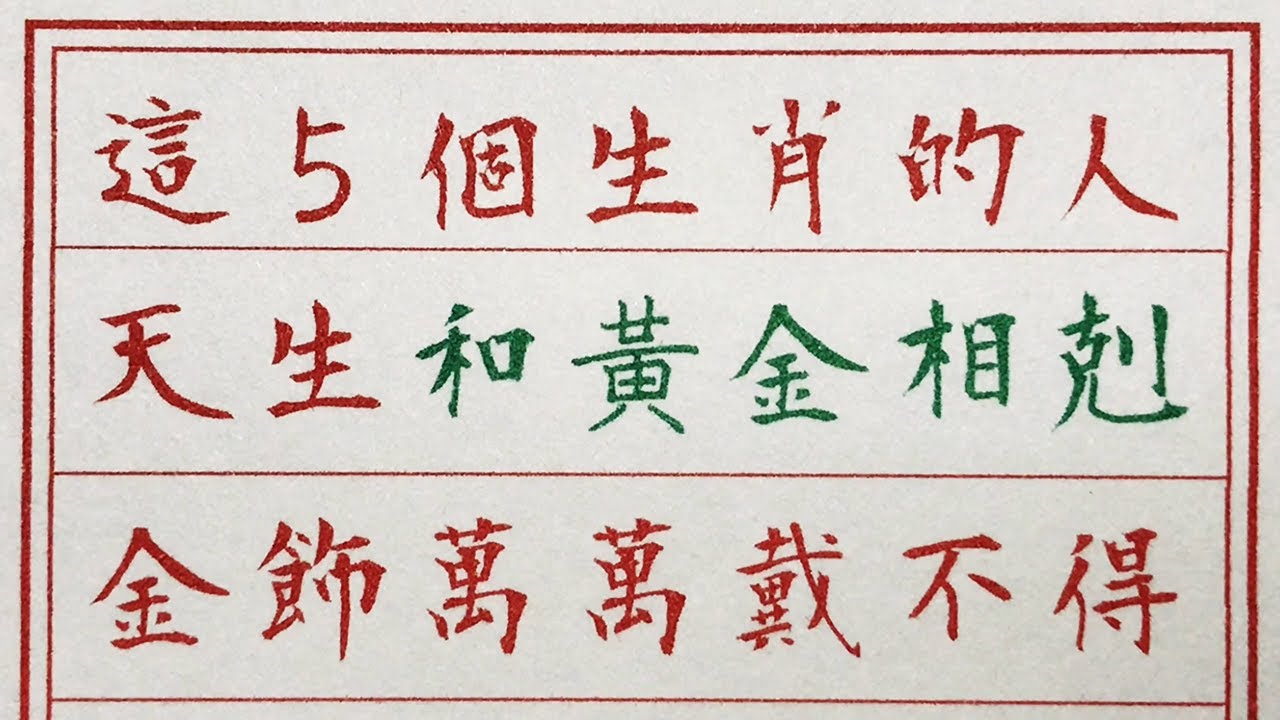 這5個生肖的人
天生和黃金相剋
金飾萬萬戴不得